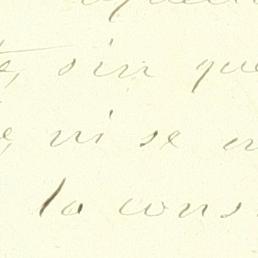 sin que
ni se
la cons